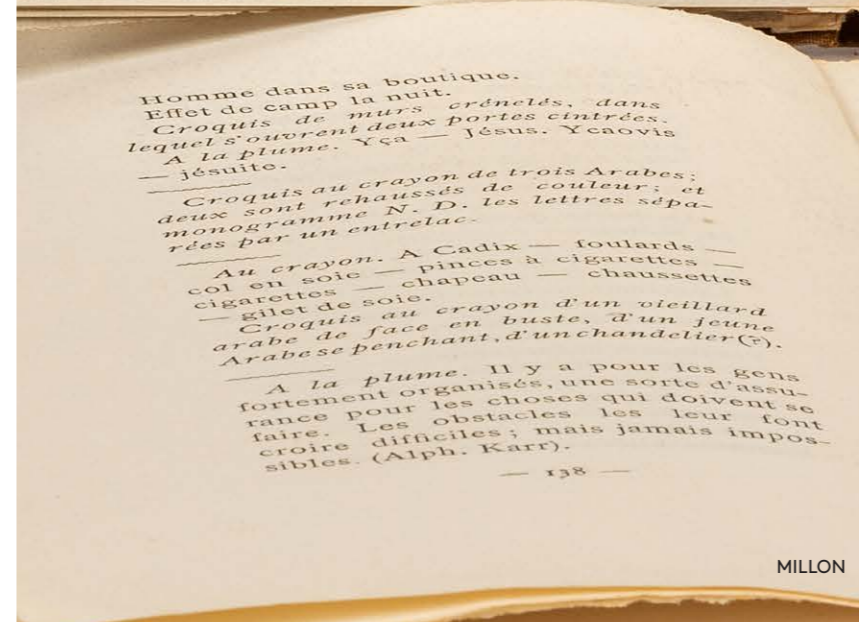 Homme dans sa boutique.
Effet de camp la nuit.
Croquis de murs crénelés, dans
lequel s'ouvrent deux portes cintrées.
A la plume. Yça — Jésus. Ycaovis
— jésuite.
Croquis au crayon de trois Arabes;
deux sont rehaussés de couleur; et
monogramme N. D. les lettres sépa-
rées par un entrelac.
Au crayon. A Cadix — foulards —
col en soie — pinces à cigarettes —
cigarettes — chapeau — chaussettes
— gilet de soie.
Croquis au crayon d'un vieillard
arabe de face en buste, d'un jeune
Arabe se penchant, d'un chandelier (?).
A la plume. Il y a pour les gens
fortement organisés, une sorte d'assu-
rance pour les choses qui doivent se
faire. Les obstacles les leur font
croire difficiles; mais jamais impos-
sibles. (Alph. Karr).
— 138 —
MILLON